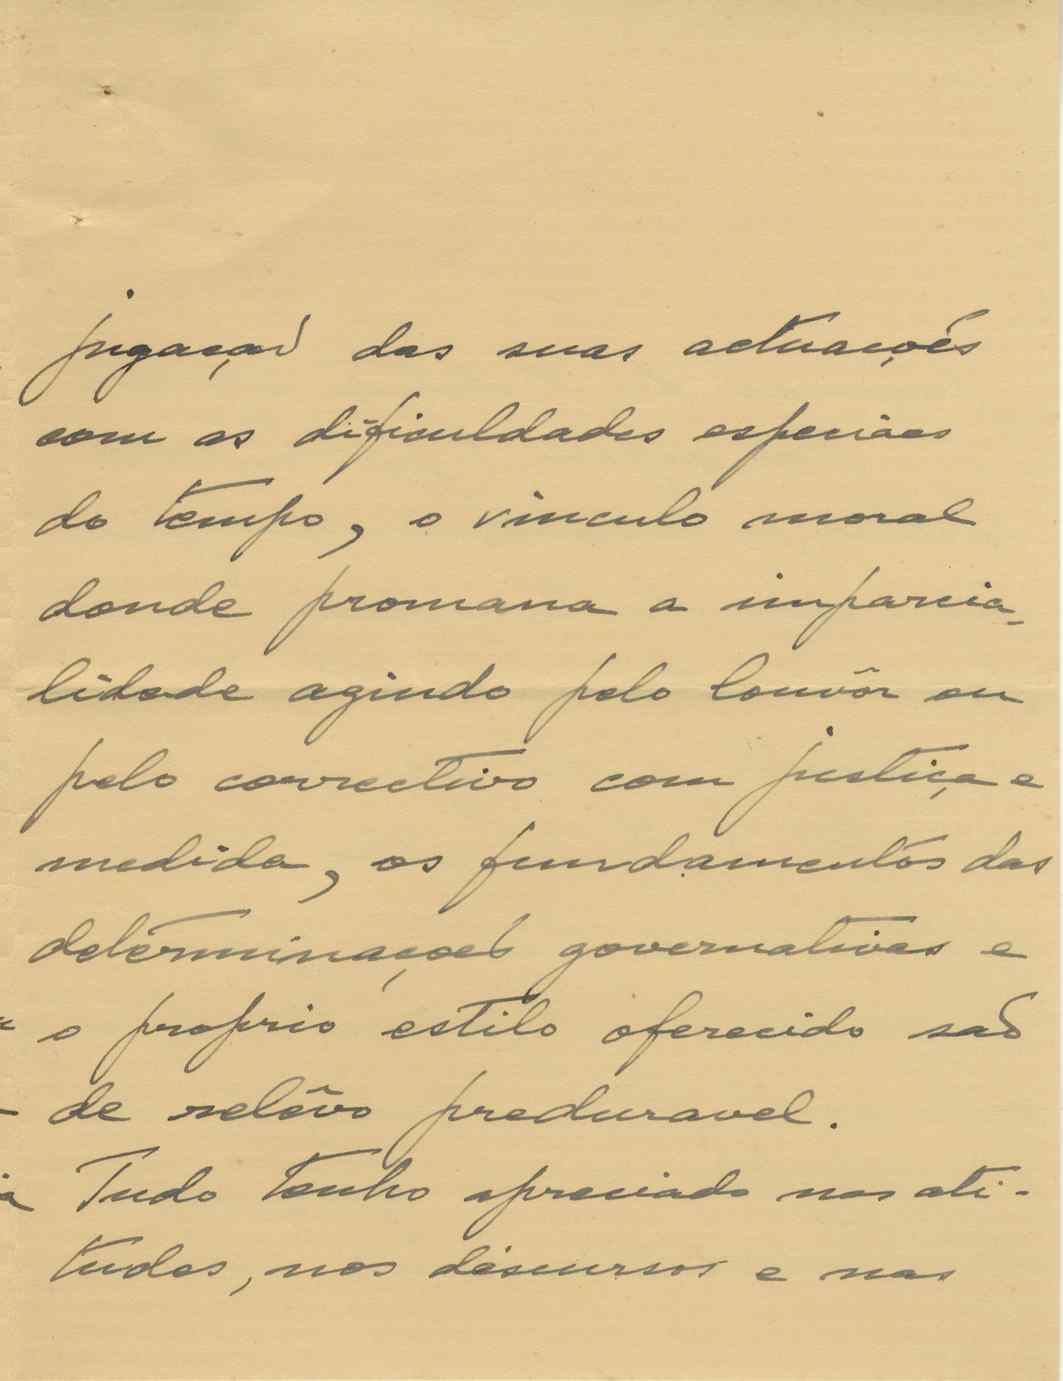 jugação das suas actuações
com as dificuldades especiaes
do tempo, o vinculo moral
donde promana a imparcia-
lidade agindo pelo louvôr ou
pelo correctivo com justiça e
medida, os fundamentos das
determinações governativas e
o proprio estilo oferecido são
de relêvo preduravel.
Tudo tenho apreciado nas ati-
tudes, nos discursos e nas